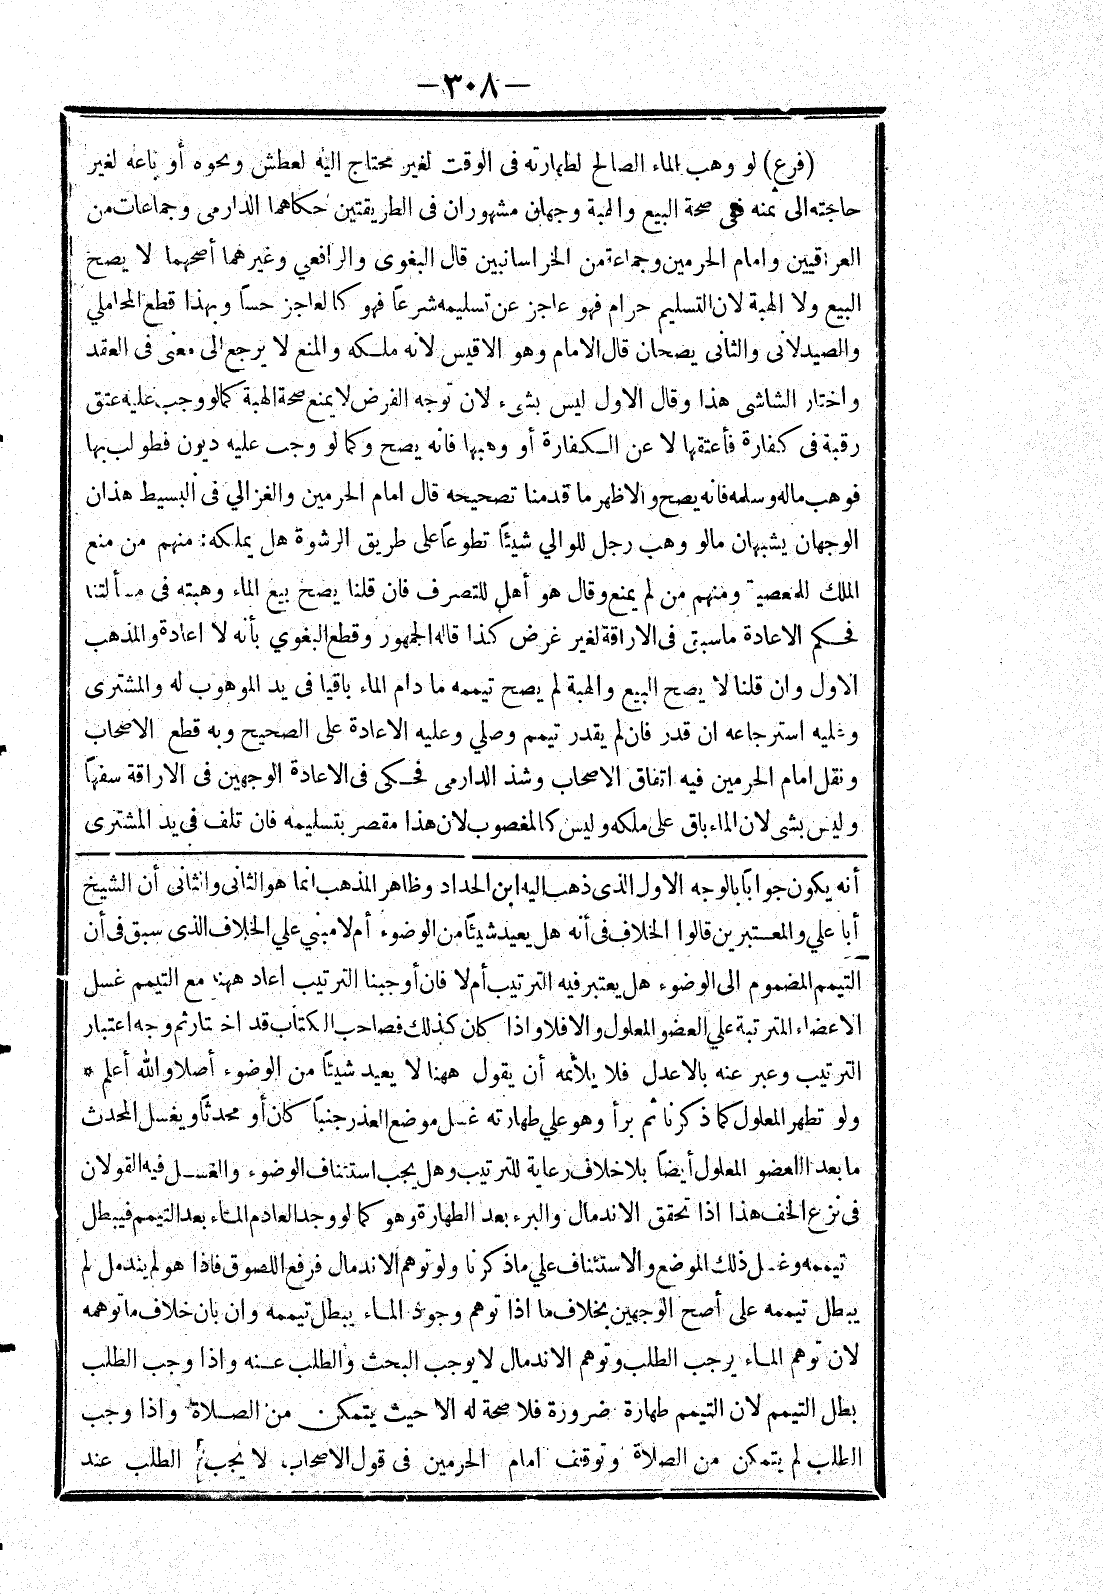 —٣٠٨—
(فرع) لو وهب الماء الصالح لطهارته فى الوقت لغير محتاج اليه لعطش ونحوه أو باعه لغير
حاجته الى ثمنه ففى صحة البيع والهبة وجهان مشهوران فى الطريقتين حكاهما الدارمى وجماعات من
العراقيين وامام الحرمين وجماعة من الخراسانيين قال البغوى والرافعي وغيرهما أصحهما لا يصح
البيع ولا الهبة لان التسليم حرام فهو عاجز عن تسليمه شرعاً فهو كالعاجز حساً وبهذا قطع المحاملي
والصيدلانى والثانى يصحان قال الامام وهو الاقيس لانه ملكه والمنع لا يرجع الى معنى فى العقد
واختار الشاشى هذا وقال الاول ليس بشىء لان توجه الفرض لا يمنع صحة الهبة كما لو وجب عليه عتق
رقبة فى كفارة فأعتقها لا عن الكفارة أو وهبها فانه يصح وكما لو وجب عليه ديون فطولب بها
فوهب ماله وسلمه فانه يصح والاظهر ما قدمنا تصحيحه قال امام الحرمين والغزالي فى البسيط هذان
الوجهان يشبهان مالو وهب رجل للوالي شيئاً تطوعاً على طريق الرشوة هل يملكه: منهم من منع
الملك للمعصية ومنهم من لم يمنع وقال هو أهل للتصرف فان قلنا يصح بيع الماء وهبته فى مسألتنا
فحكم الاعادة ماسبق فى الاراقة لغير غرض كذا قاله الجمهور وقطع البغوي بأنه لا اعادة والمذهب
الاول وان قلنا لا يصح البيع والهبة لم يصح تيممه ما دام الماء باقيا فى يد الموهوب له والمشترى
وعليه استرجاعه ان قدر فان لم يقدر تيمم وصلي وعليه الاعادة على الصحيح وبه قطع الاصحاب
ونقل امام الحرمين فيه اتفاق الاصحاب وشذ الدارمى فحكى فى الاعادة الوجهين فى الاراقة سفهاً
وليس بشى لان الماء باق على ملكه وليس كالمغصوب لان هذا مقصر بتسليمه فان تلف فى يد المشترى
أنه يكون جواباً بالوجه الاول الذى ذهب اليه ابن الحداد وظاهر المذهب انما هو الثانى والثانى أن الشيخ
أبا علي والمعتبرين قالوا الخلاف فى أنه هل يعيد شيئاً من الوضوء أم لا مبني علي الخلاف الذى سبق فى أن
التيمم المضموم الى الوضوء هل يعتبر فيه الترتيب أم لا فان أوجبنا الترتيب اعاد ههنا مع التيمم غسل
الاعضاء المترتبة علي العضو المعلول والا فلا واذا كان كذلك فصاحب الكتاب قد اختار ثم وجه اعتبار
الترتيب وعبر عنه بالاعدل فلا يلائمه أن يقول ههنا لا يعيد شيئاً من الوضوء أصلا والله أعلم *
ولو تطهر المعلول كما ذكرنا ثم برأ وهو علي طهارته غسل موضع العذر جنباً كان أو محدثاً ويغسل المحدث
ما بعد العضو المعلول أيضاً بلا خلاف رعاية للترتيب وهل يجب استئناف الوضوء والغسل فيه القولان
فى نزع الخف هذا اذا تحقق الاندمال والبرء بعد الطهارة وهو كما لو وجد العادم الماء بعد التيمم فيبطل
تيممه وغسل ذلك الموضع والاستئناف علي ماذكرنا ولو توهم الاندمال فرفع اللصوق فاذا هو لم يندمل لم
يبطل تيممه على أصح الوجهين بخلاف ما اذا توهم وجود الماء يبطل تيممه وان بان خلاف ماتوهمه
لان توهم الماء يوجب الطلب وتوهم الاندمال لا يوجب البحث والطلب عنه واذا وجب الطلب
بطل التيمم لان التيمم طهارة ضرورة فلا صحة له الا حيث يتمكن من الصلاة واذا وجب
الطلب لم يتمكن من الصلاة وتوقف امام الحرمين فى قول الاصحاب لا يجب الطلب عند